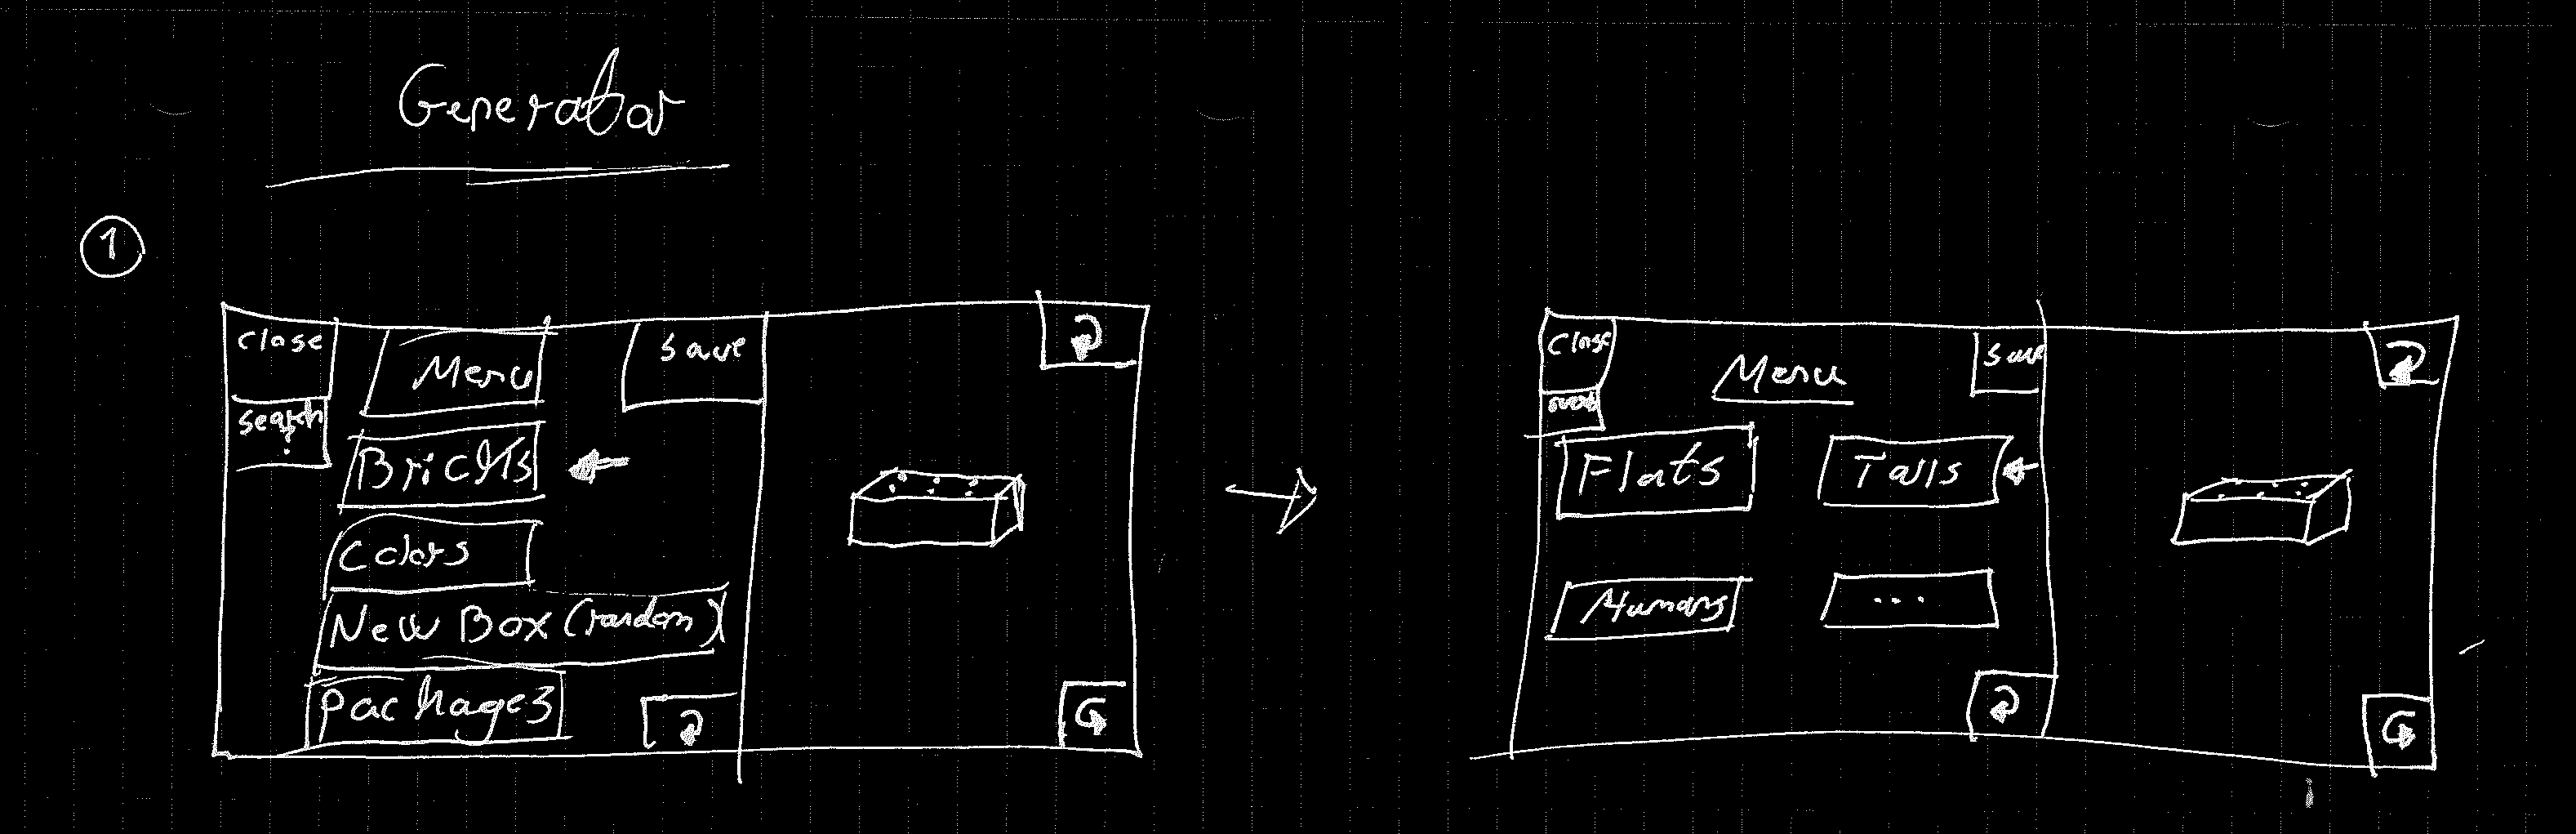 Generator
1
Close
Menu
Save
Search
Bricks
Colors
New Box (random)
Packages
Close
Menu
Save
Flats
Talls
Humans
...